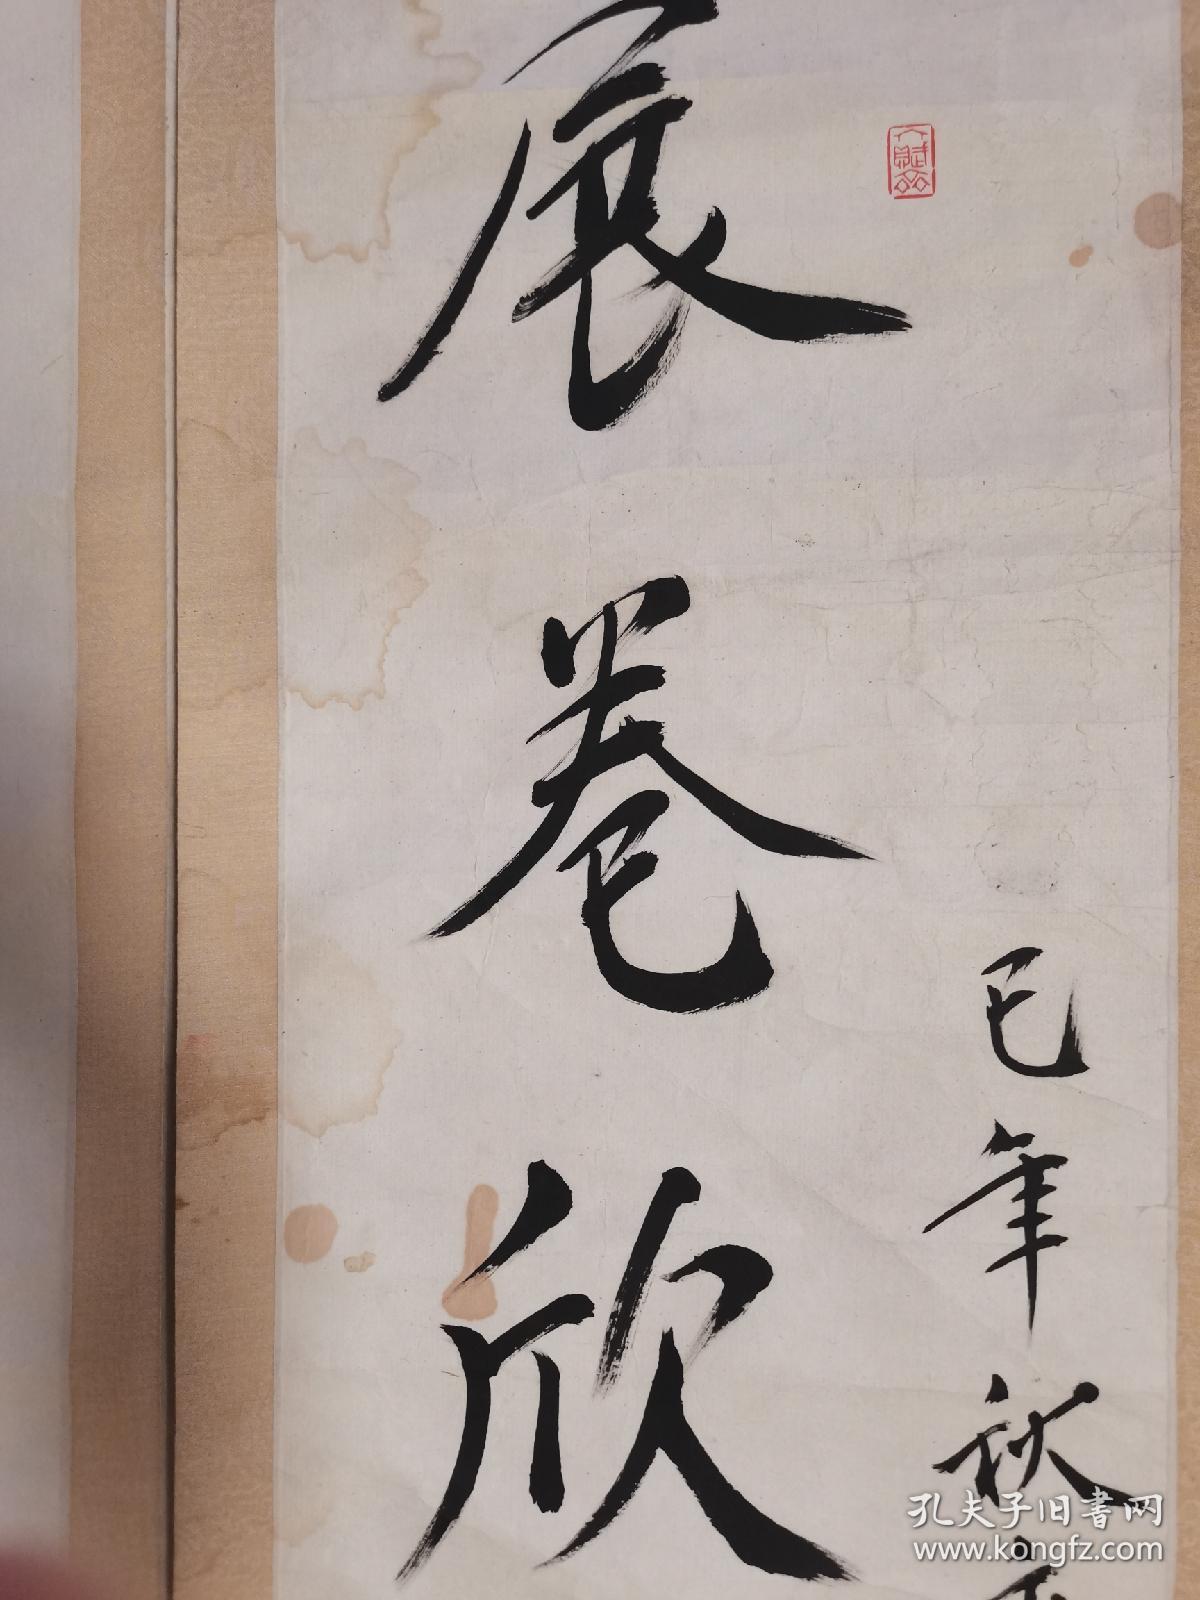 展卷欣
已年秋
孔夫子旧书网
www.kongfz.com